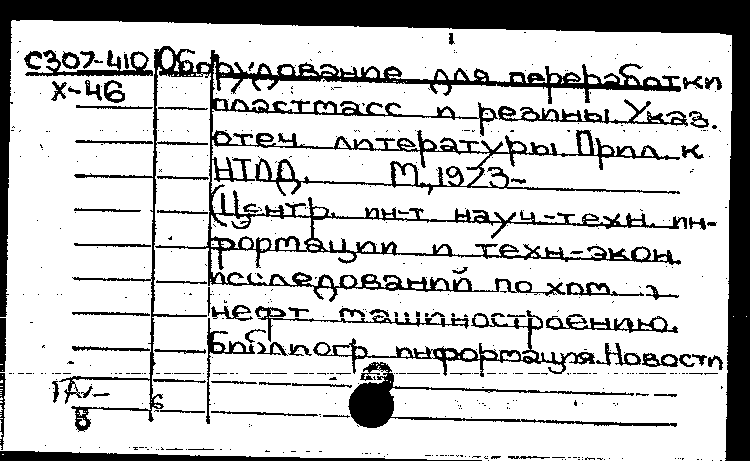 С307-410 Оборудование для переработки
Х-46 пластмасс и резины. Указ.
отеч. литературы. Прил. к
НТЛД. М., 1973-
(Центр. ин-т науч.-техн. ин-
формации и техн.-экон.
исследований по хим. и
нефт. машиностроению.
Библиогр. информация. Новости
6
8